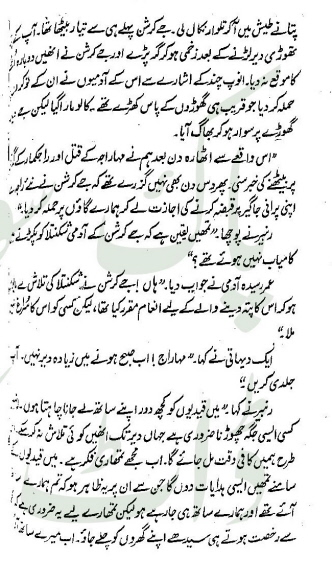 پتا نے طیش میں آ کر تلوار نکال لی۔ جے کرشن پہلے ہی سے تیار بیٹھا تھا۔ آپ کے
تھوڑی دیر لڑنے کے بعد زخمی ہو کر گر پڑے اور جے کرشن نے انھیں دوبارہ
کا موقع نہ دیا۔ انوپ چند کے اشارے سے اس کے آدمیوں نے ان کے نوکر
حملہ کر دیا جو قریب ہی گھوڑوں کے پاس کھڑے تھے۔ کالو مارا گیا لیکن
گھوڑے پر سوار ہو کر بھاگ آیا۔
"اس واقعے سے اٹھارہ دن بعد ہم نے مہاراجہ کے قتل اور راجکمار کے
پر بیٹھنے کی خبر سنی۔ پھر دس دن بھی نہیں گزرے تھے کہ جے کرشن نے نئے راجہ
اپنی پرانی جاگیر پر قبضہ کرنے کی اجازت لے کر ہمارے گاؤں پر حملہ کر دیا۔"
رنبیر نے پوچھا۔ "تمھیں یقین ہے کہ جے کرشن کے آدمی شکنتلا کو پکڑنے
کامیاب نہیں ہوئے تھے؟"
عمر رسیدہ آدمی نے جواب دیا۔ "ہاں! جے کرشن نے شکنتلا کی تلاش سے
ہو کر اس کا پتہ دینے والے کے لیے انعام مقرر کیا تھا، لیکن کسی کو اس کا سراغ
ملا۔"
ایک دیہاتی نے کہا۔ "مہاراج! اب صبح ہونے میں زیادہ دیر نہیں۔ آپ
جلدی کریں۔"
رنبیر نے کہا۔ "میں قیدیوں کو کچھ دور اپنے ساتھ لے جانا چاہتا ہوں۔
کسی ایسی جگہ چھوڑنا ضروری ہے جہاں دیر تک انھیں کوئی تلاش نہ کر سکے
طرح ہمیں کافی وقت مل جائے گا۔ اب مجھے تمھاری فکر ہے۔ میں قیدیوں
سامنے تمھیں ایسی ہدایات دوں گا جن سے ان پر یہ ظاہر ہو کہ تم ہمارے
آئے تھے اور ہمارے ساتھ ہی جا رہے ہو لیکن تمھارے لیے یہ ضروری ہے
سے رخصت ہوتے ہی سیدھے اپنے گھروں کو چلے جاؤ۔ اب میرے ساتھ